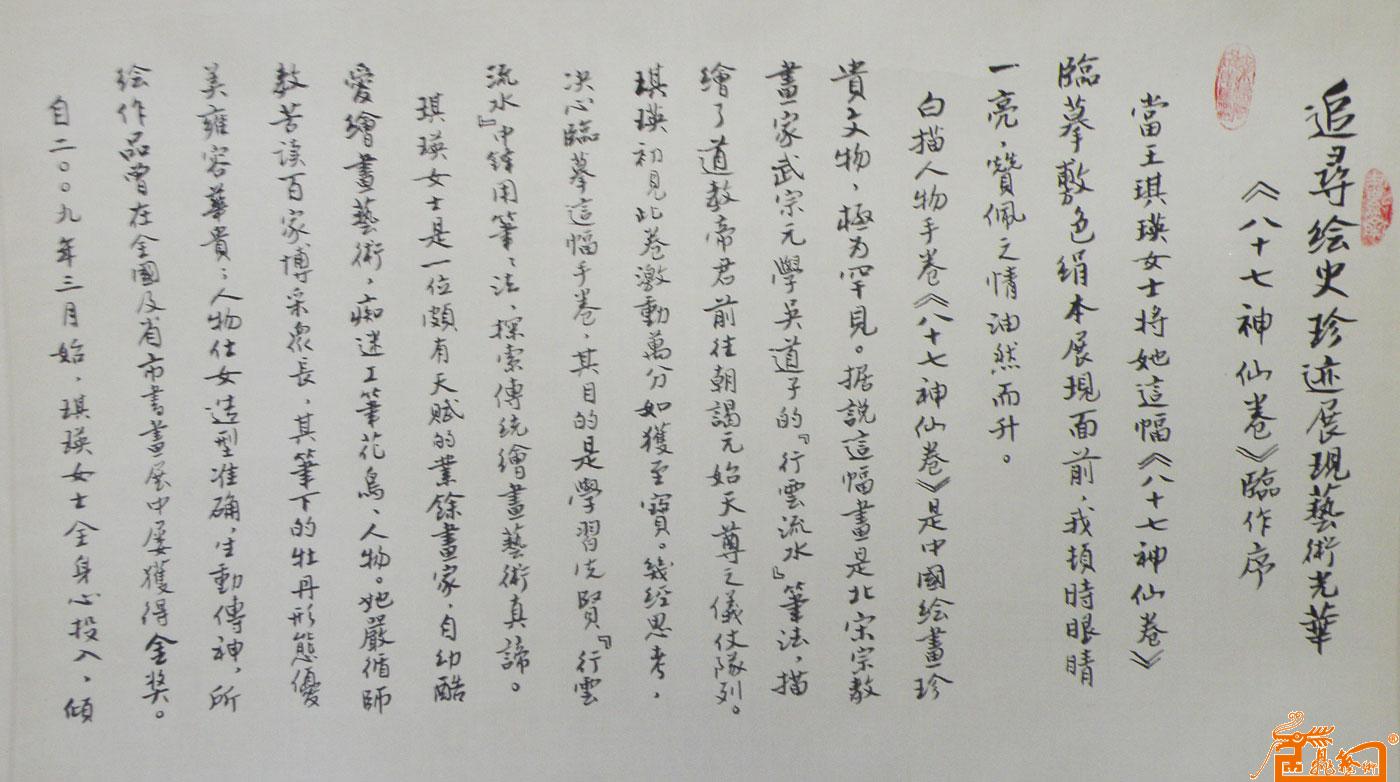 追尋绘史珍迹展現藝術光華
《八十七神仙卷》臨作序
當王琪瑛女士將她這幅《八十七神仙卷》
臨摹敷色絹本展現面前，我頓時眼睛
一亮，贊佩之情油然而升。
白描人物手卷《八十七神仙卷》是中國绘畫珍
貴文物，極为罕見。据説這幅畫是北宋宗教
畫家武宗元學吳道子的『行雲流水』筆法，描
繪了道教帝君前往朝謁元始天尊之儀仗隊列。
琪瑛初見此卷激動萬分如獲至寶。幾經思考，
决心臨摹這幅手卷，其目的是學習先賢『行雲
流水』中鋒用筆之法，探索傳统繪畫藝術真諦。
琪瑛女士是一位頗有天赋的業餘畫家，自幼酷
愛繪畫藝術，痴迷工筆花鳥、人物。她嚴循師
教苦读百家博采衆長，其筆下的牡丹形態優
美雍容華貴；人物仕女造型准确，生動傳神，所
绘作品曾在全國及省市書畫展中屡獲得金奖。
自二〇〇九年三月始，琪瑛女士全身心投入，傾